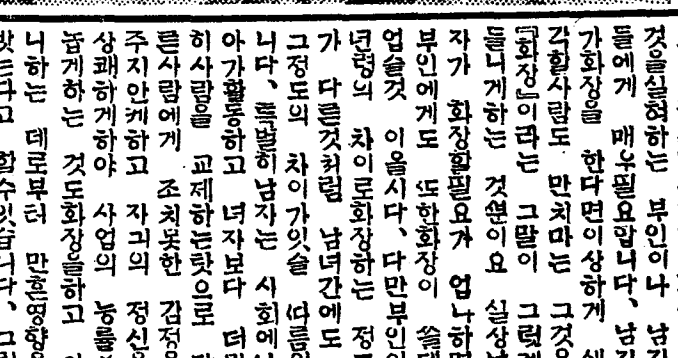 것을실혀하는 부인이나 남
들에게 매우필요합니다、남
가화장을 한다면이상하게
각할사람도 만치마는 그것을
『화장』이라는 그말이 그럿케
들니게하는 것뿐이요 실상
자가 화장할필요가 업나하면
부인에게도 ᄯᅩ한화장이 쓸대
업슬것 이올시다、다만부인의
년령의 차이로화장하는 정
가 다른것처럼 남녀간에도
그정도의 차이가잇슬 ᄯᅡ름
니다、특별히남자는 사회에
아가활동하고 녀자보다 더
히사람을 교제하는탓으로
른사람에게 조치못한 감정을
주지안케하고 자긔의 정신을
상쾌하게하야 사업의 능률
놉게하는 것도화장을하고
니하는 데로부터 만흔영향을
밧는다고 할수잇습니다、그